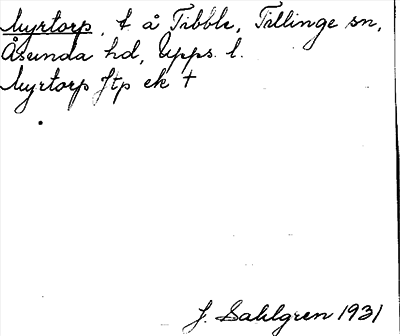 Myrtorp, t å Tibble, Tillinge sn,
Åsunda hd, Upps. l.
Myrtorp ftp ek †
J. Sahlgren 1931